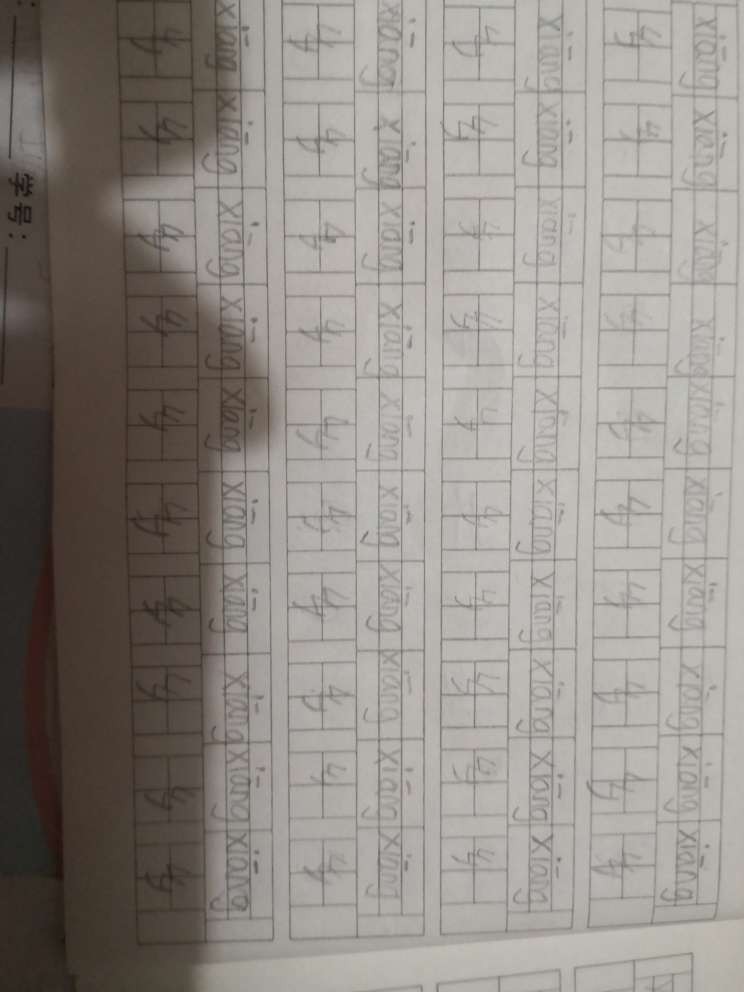 xiāng xiāng xiāng xiāng xiāng xiāng xiāng xiāng xiāng xiāng
乡 乡 乡 乡 乡 乡 乡 乡 乡 乡
xiāng xiāng xiāng xiāng xiāng xiāng xiāng xiāng xiāng xiāng
乡 乡 乡 乡 乡 乡 乡 乡 乡 乡
xiāng xiāng xiāng xiāng xiāng xiāng xiāng xiāng xiāng xiāng
乡 乡 乡 乡 乡 乡 乡 乡 乡 乡
xiāng xiāng xiāng xiāng xiāng xiāng xiāng xiāng xiāng xiāng
乡 乡 乡 乡 乡 乡 乡 乡 乡 乡
学号：